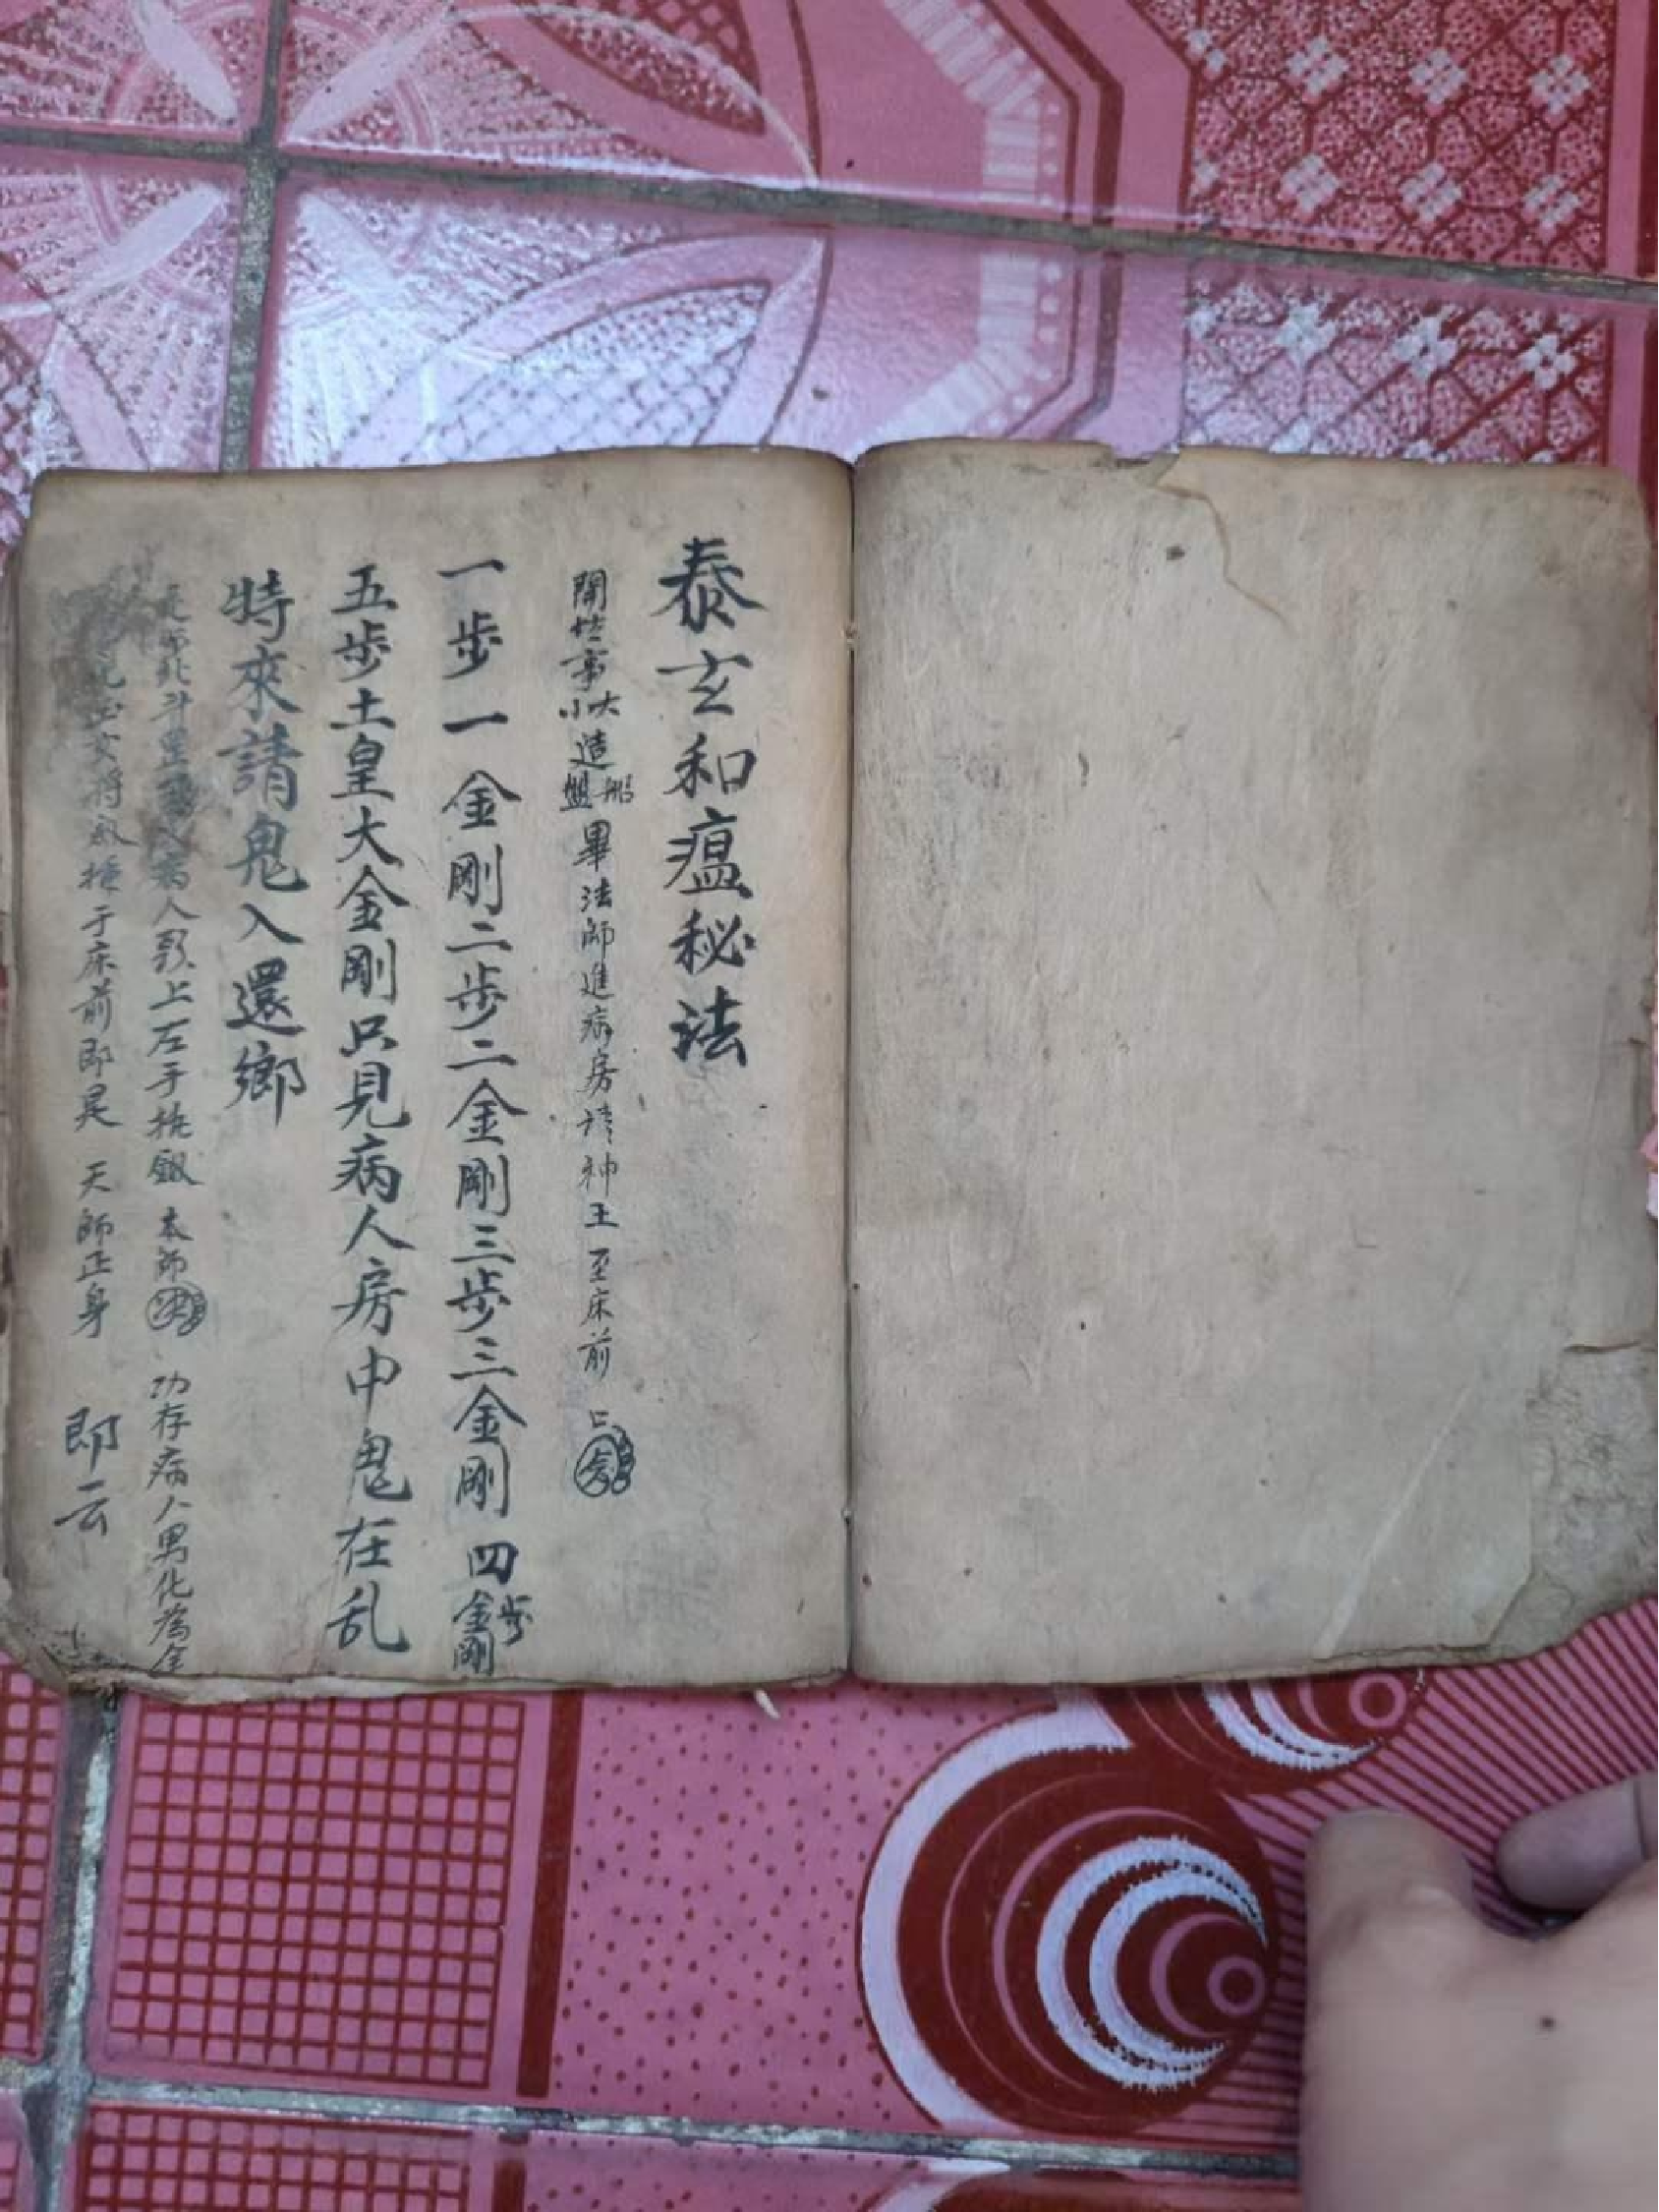 泰玄和瘟秘法
開坛事大小造船盤畢法師進病房請神王至床前
一步一金剛二步二金剛三步三金剛四步金剛
五步土皇大金剛只見病人房中鬼在乱
特來請鬼入還鄉
北斗星病人影上左手执劔本師功存病人男化為金
玉女将劔插于床前即是天師正身即云